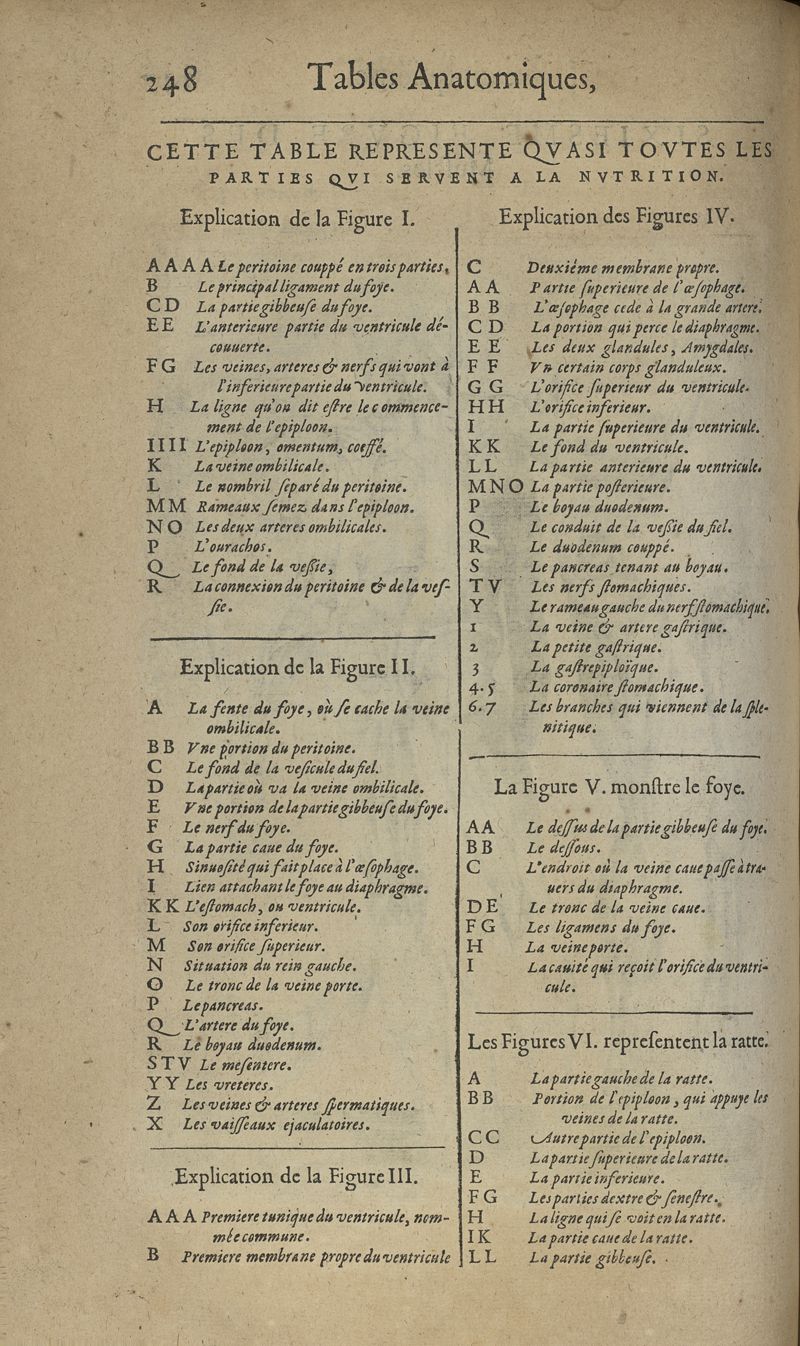 248 Tables Anatomiques,
CETTE TABLE REPRESENTE QVASI TOVTES LES
PARTIES QVI SERVENT A LA NVTRITION.
Explication de la Figure I.
A A A A Le peritoine couppé en trois parties,
B Le principal ligament du foye.
C D La partie gibbeuſe du foye.
E E L'anterieure partie du ventricule dé-
couuerte.
F G Les veines, arteres & nerfs qui vont à
l'inferieure partie du ventricule.
H La ligne qu'on dit eſtre le commence-
ment de l'epiploon.
I I I I L'epiploon, omentum, coeffé.
K La veine ombilicale.
L Le nombril ſeparé du peritoine.
M M Rameaux ſemez dans l'epiploon.
N O Les deux arteres ombilicales.
P L'ourachos.
Q Le fond de la veſsie,
R La connexion du peritoine & de la veſ-
ſie.
Explication de la Figure II.
A La fente du foye, où ſe cache la veine
ombilicale.
B B Vne portion du peritoine.
C Le fond de la veſicule du fiel.
D La partie où va la veine ombilicale.
E Vne portion de la partie gibbeuſe du foye.
F Le nerf du foye.
G La partie caue du foye.
H Sinuoſité qui fait place à l'œſophage.
I Lien attachant le foye au diaphragme.
K K L'eſtomach, ou ventricule.
L Son orifice inferieur.
M Son orifice ſuperieur.
N Situation du rein gauche.
O Le tronc de la veine porte.
P Le pancreas.
Q L'artere du foye.
R Le boyau duodenum.
S T V Le meſentere.
Y Y Les vreteres.
Z Les veines & arteres ſpermatiques.
X Les vaiſſeaux ejaculatoires.
Explication de la Figure III.
A A A Premiere tunique du ventricule, nom-
mée commune.
B Premiere membrane propre du ventricule
Explication des Figures IV.
C Deuxiéme membrane propre.
A A Partie ſuperieure de l'œſophage.
B B L'œſophage cede à la grande artere.
C D La portion qui perce le diaphragme.
E E Les deux glandules, Amygdales.
F F Vn certain corps glanduleux.
G G L'orifice ſuperieur du ventricule.
H H L'orifice inferieur.
I La partie ſuperieure du ventricule.
K K Le fond du ventricule.
L L La partie anterieure du ventricule.
M N O La partie poſterieure.
P Le boyau duodenum.
Q Le conduit de la veſsie du fiel.
R Le duodenum couppé.
S Le pancreas tenant au boyau.
T V Les nerfs ſtomachiques.
Y Le rameau gauche du nerf ſtomachique.
1 La veine & artere gaſtrique.
2 La petite gaſtrique.
3 La gaſtrepiploïque.
4.5 La coronaire ſtomachique.
6.7 Les branches qui viennent de la ſple-
nitique.
La Figure V. monſtre le foye.
A A Le deſſus de la partie gibbeuſe du foye.
B B Le deſſous.
C L'endroit où la veine caue paſſe à tra-
uers du diaphragme.
D E Le tronc de la veine caue.
F G Les ligamens du foye.
H La veine porte.
I La cauité qui reçoit l'orifice du ventri-
cule.
Les Figures VI. repreſentent la ratte.
A La partie gauche de la ratte.
B B Portion de l'epiploon, qui appuye les
veines de la ratte.
C C Autre partie de l'epiploon.
D La partie ſuperieure de la ratte.
E La partie inferieure.
F G Les parties dextre & ſeneſtre.
H La ligne qui ſe voit en la ratte.
I K La partie caue de la ratte.
L L La partie gibbeuſe.